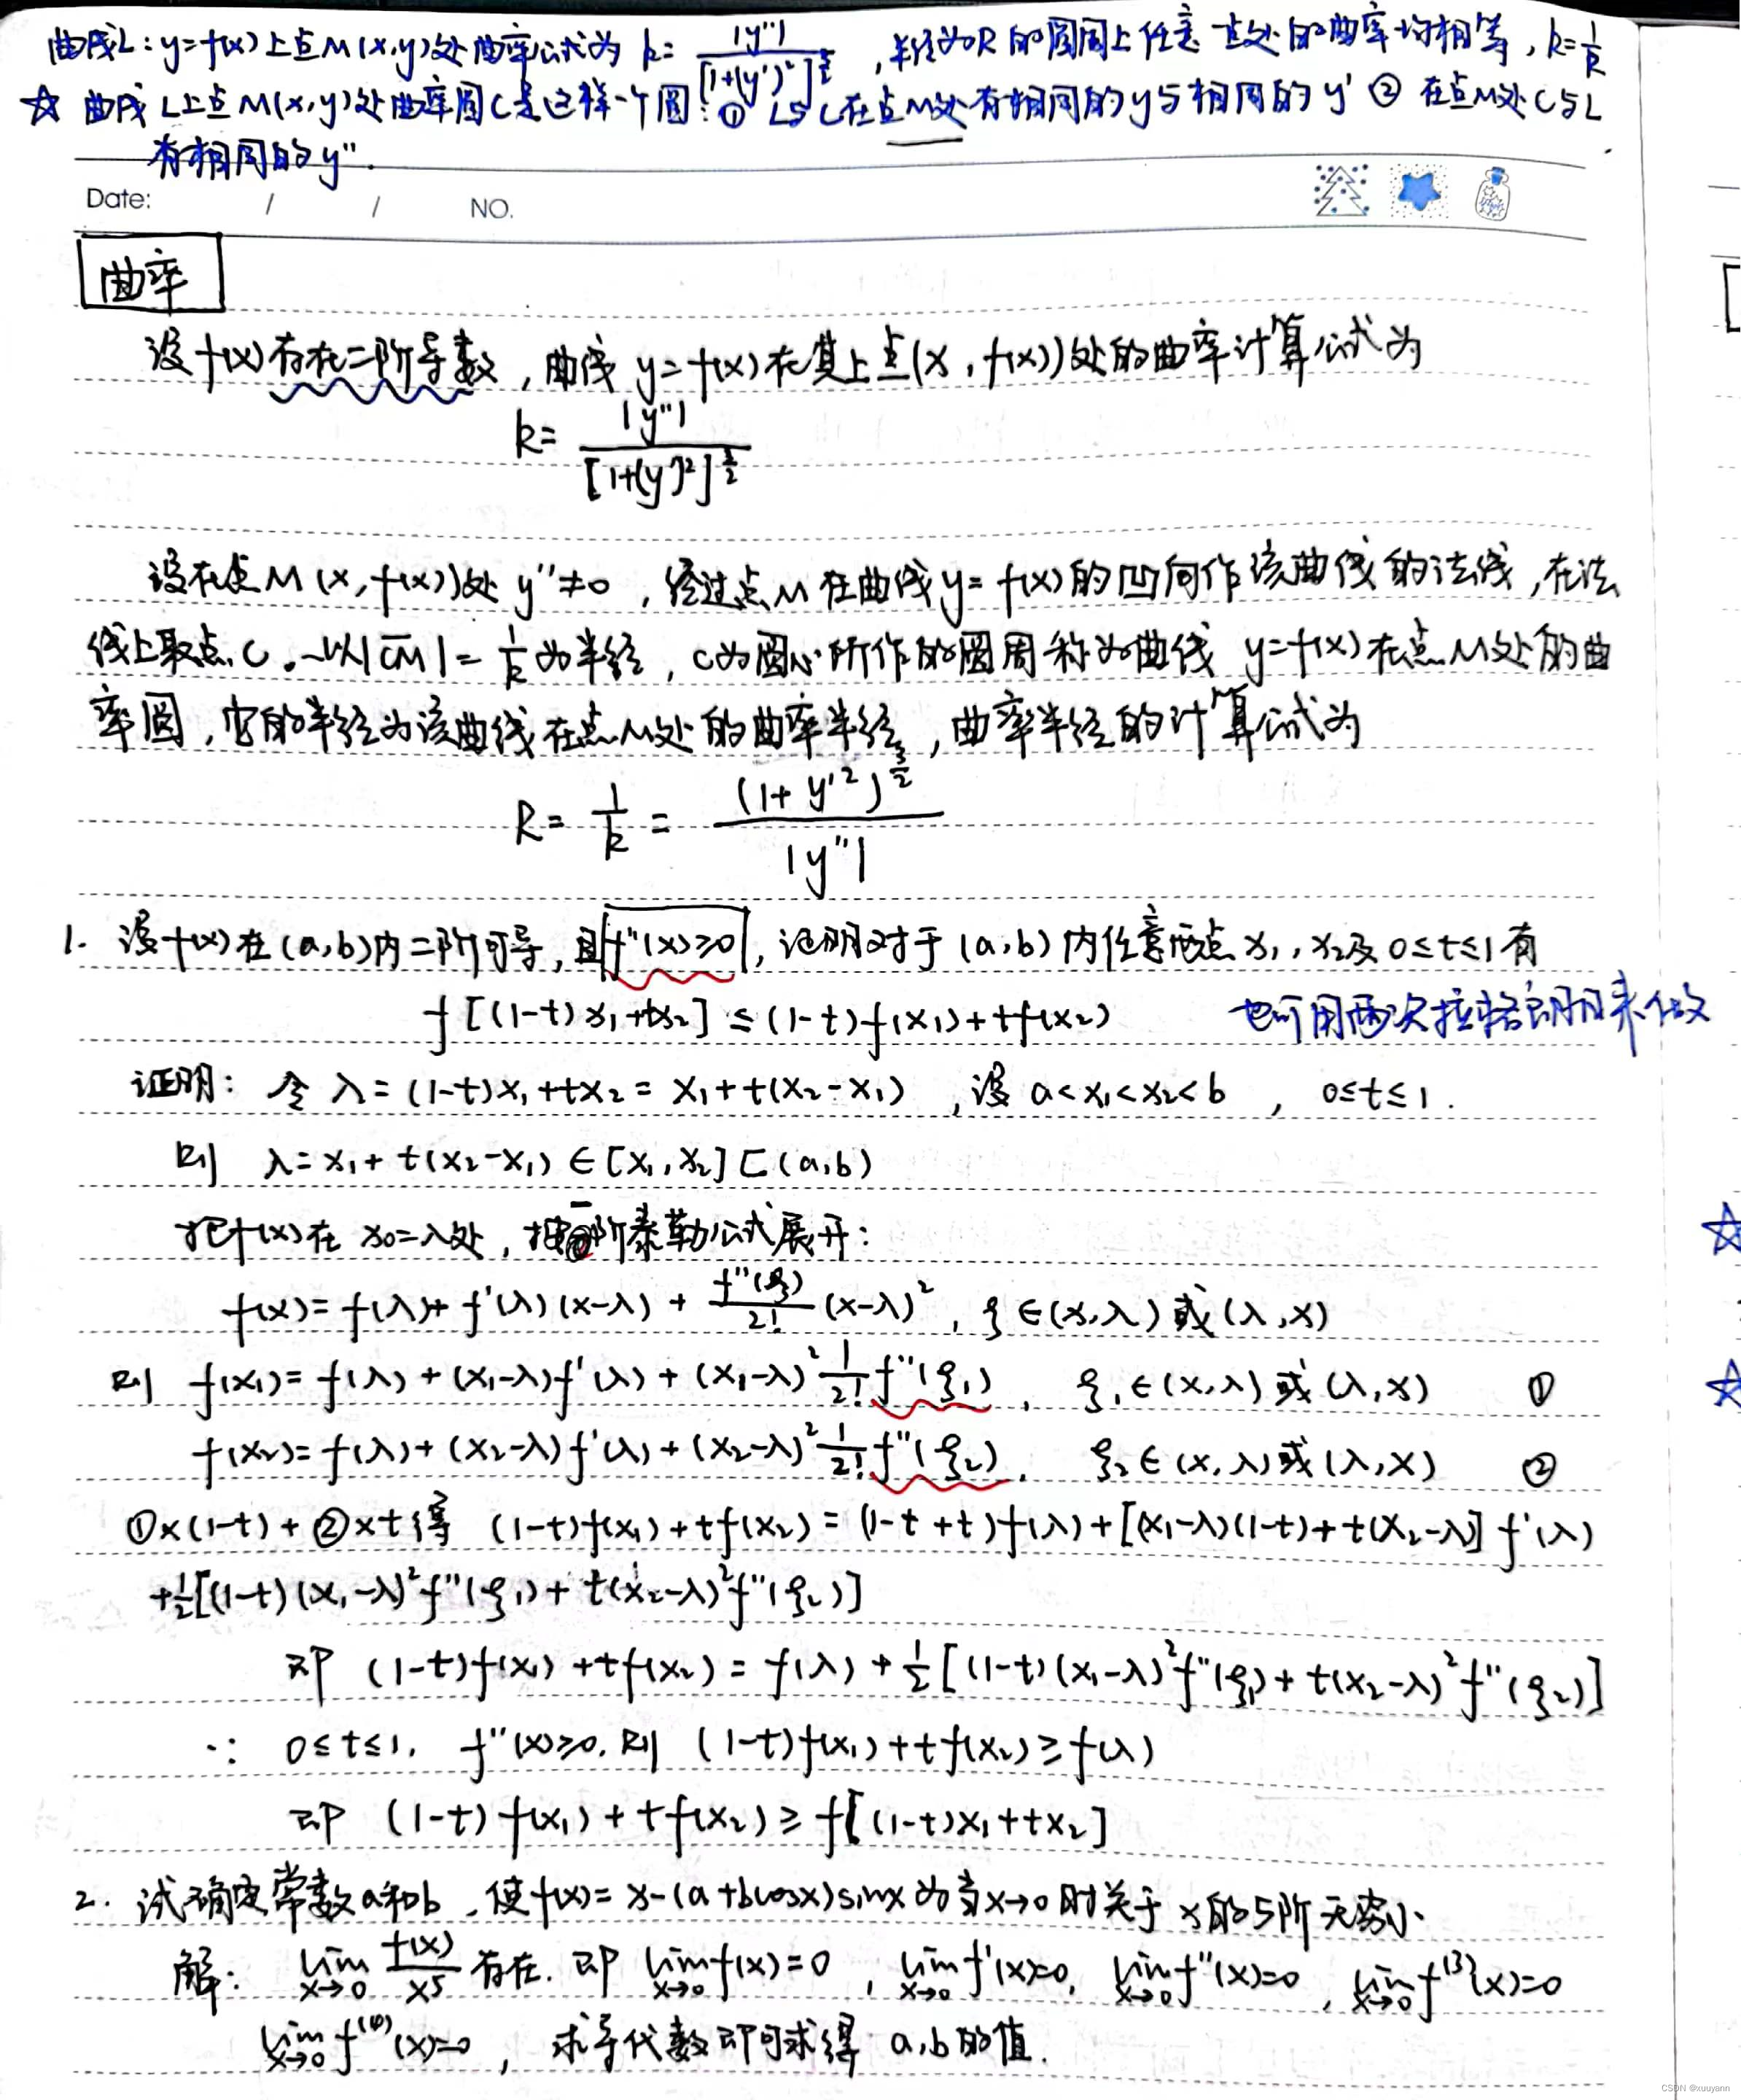 曲线L：y=f(x)上点M(x,y)处曲率公式为 k= |y''| / [1+(y')²]^{3/2}，半径为R的圆周上任意一点处的曲率均相等，k=1/R
☆ 曲线L上点M(x,y)处曲率圆C是这样一个圆：① L与C在点M处有相同的y与相同的y' ② 在点M处C与L
有相同的y''.
Date: / / NO.
曲率
设f(x)存在二阶导数，曲线 y=f(x)在其上点(x,f(x))处的曲率计算公式为
k= |y''| / [1+(y')²]^{3/2}
设在点M(x,f(x))处 y''≠0，经过点M在曲线y=f(x)的凹向作该曲线的法线，在法
线上取点C。以|CM|=1/k为半径，C为圆心所作的圆周称为曲线 y=f(x)在点M处的曲
率圆，它的半径为该曲线在点M处的曲率半径，曲率半径的计算公式为
R= 1/k = (1+y'²)^{3/2} / |y''|
1. 设f(x)在(a,b)内二阶可导，且f''(x)≥0，证明对于(a,b)内任意两点x₁,x₂及0≤t≤1有
f[(1-t)x₁+tx₂]≤(1-t)f(x₁)+tf(x₂) 也可用两次拉格朗日来做
证明：令 λ=(1-t)x₁+tx₂=x₁+t(x₂-x₁)，设 a<x₁<x₂<b，0≤t≤1.
则 λ=x₁+t(x₂-x₁)∈[x₁,x₂]⊏(a,b)
把f(x)在x₀=λ处，按一阶泰勒公式展开：
f(x)=f(λ)+f'(λ)(x-λ)+ f''(ξ)/2! (x-λ)²，ξ∈(x,λ)或(λ,x)
则 f(x₁)=f(λ)+(x₁-λ)f'(λ)+(x₁-λ)² 1/2! f''(ξ₁)，ξ₁∈(x,λ)或(λ,x) ①
f(x₂)=f(λ)+(x₂-λ)f'(λ)+(x₂-λ)² 1/2! f''(ξ₂)，ξ₂∈(x,λ)或(λ,x) ②
①×(1-t)+②×t得 (1-t)f(x₁)+tf(x₂)=(1-t+t)f(λ)+[(x₁-λ)(1-t)+t(x₂-λ)]f'(λ)
+1/2[(1-t)(x₁-λ)²f''(ξ₁)+t(x₂-λ)²f''(ξ₂)]
即 (1-t)f(x₁)+tf(x₂)=f(λ)+1/2[(1-t)(x₁-λ)²f''(ξ₁)+t(x₂-λ)²f''(ξ₂)]
∵ 0≤t≤1，f''(x)≥0，则 (1-t)f(x₁)+tf(x₂)≥f(λ)
即 (1-t)f(x₁)+tf(x₂)≥f[(1-t)x₁+tx₂]
2. 试确定常数a和b，使f(x)=x-(a+bcosx)sinx为当x→0时关于x的5阶无穷小
解：lim_{x→0} f(x)/x⁵ 存在. 即 lim_{x→0} f(x)=0，lim_{x→0} f'(x)=0，lim_{x→0} f''(x)=0，lim_{x→0} f⁽³⁾(x)=0
lim_{x→0} f⁽⁴⁾(x)=0，求导代数即可求得 a,b的值.
CSDN @xuuyann